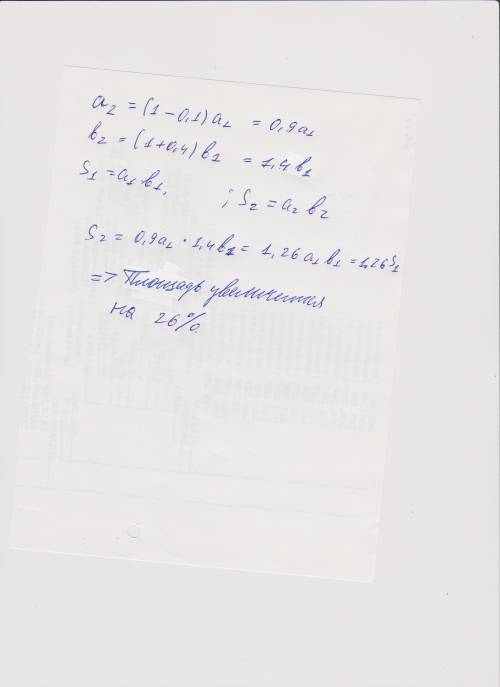 a₂ = (1 - 0,1) a₁ = 0,9a₁
b₂ = (1+0,4) b₁ = 1,4b₁
S₁ = a₁ b₁, ; S₂ = a₂ b₂
S₂ = 0,9a₁ · 1,4b₁ = 1,26 a₁ b₁ = 1,26S₁
=> Площадь увеличится
на 26%.